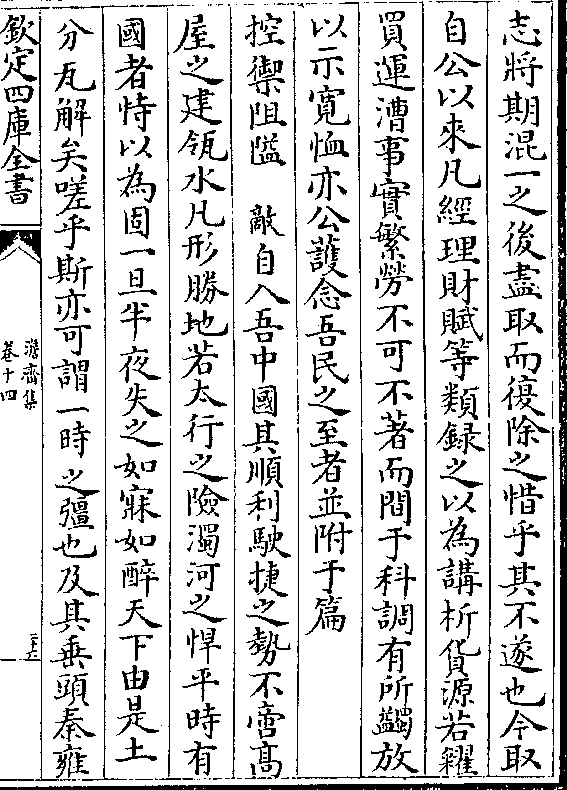 志將期混一之後盡取而復除之惜乎其不遂也今取
自公以來凡經理財賦等類録之以為講析貨源若糴
買運漕事實繁勞不可不著而間于科調有所蠲放
以示寛恤亦公護念吾民之至者並附于篇
控禦阻隘　敵自入吾中國其順利駛捷之勢不啻髙
屋之建瓴水凡形勝地若太行之險濁河之悍平時有
國者恃以為固一旦半夜失之如寐如醉天下由是土
分瓦解矣嗟乎斯亦可謂一時之彊也及其垂頭秦雍
欽定四庫全書
澹齋集
卷十四